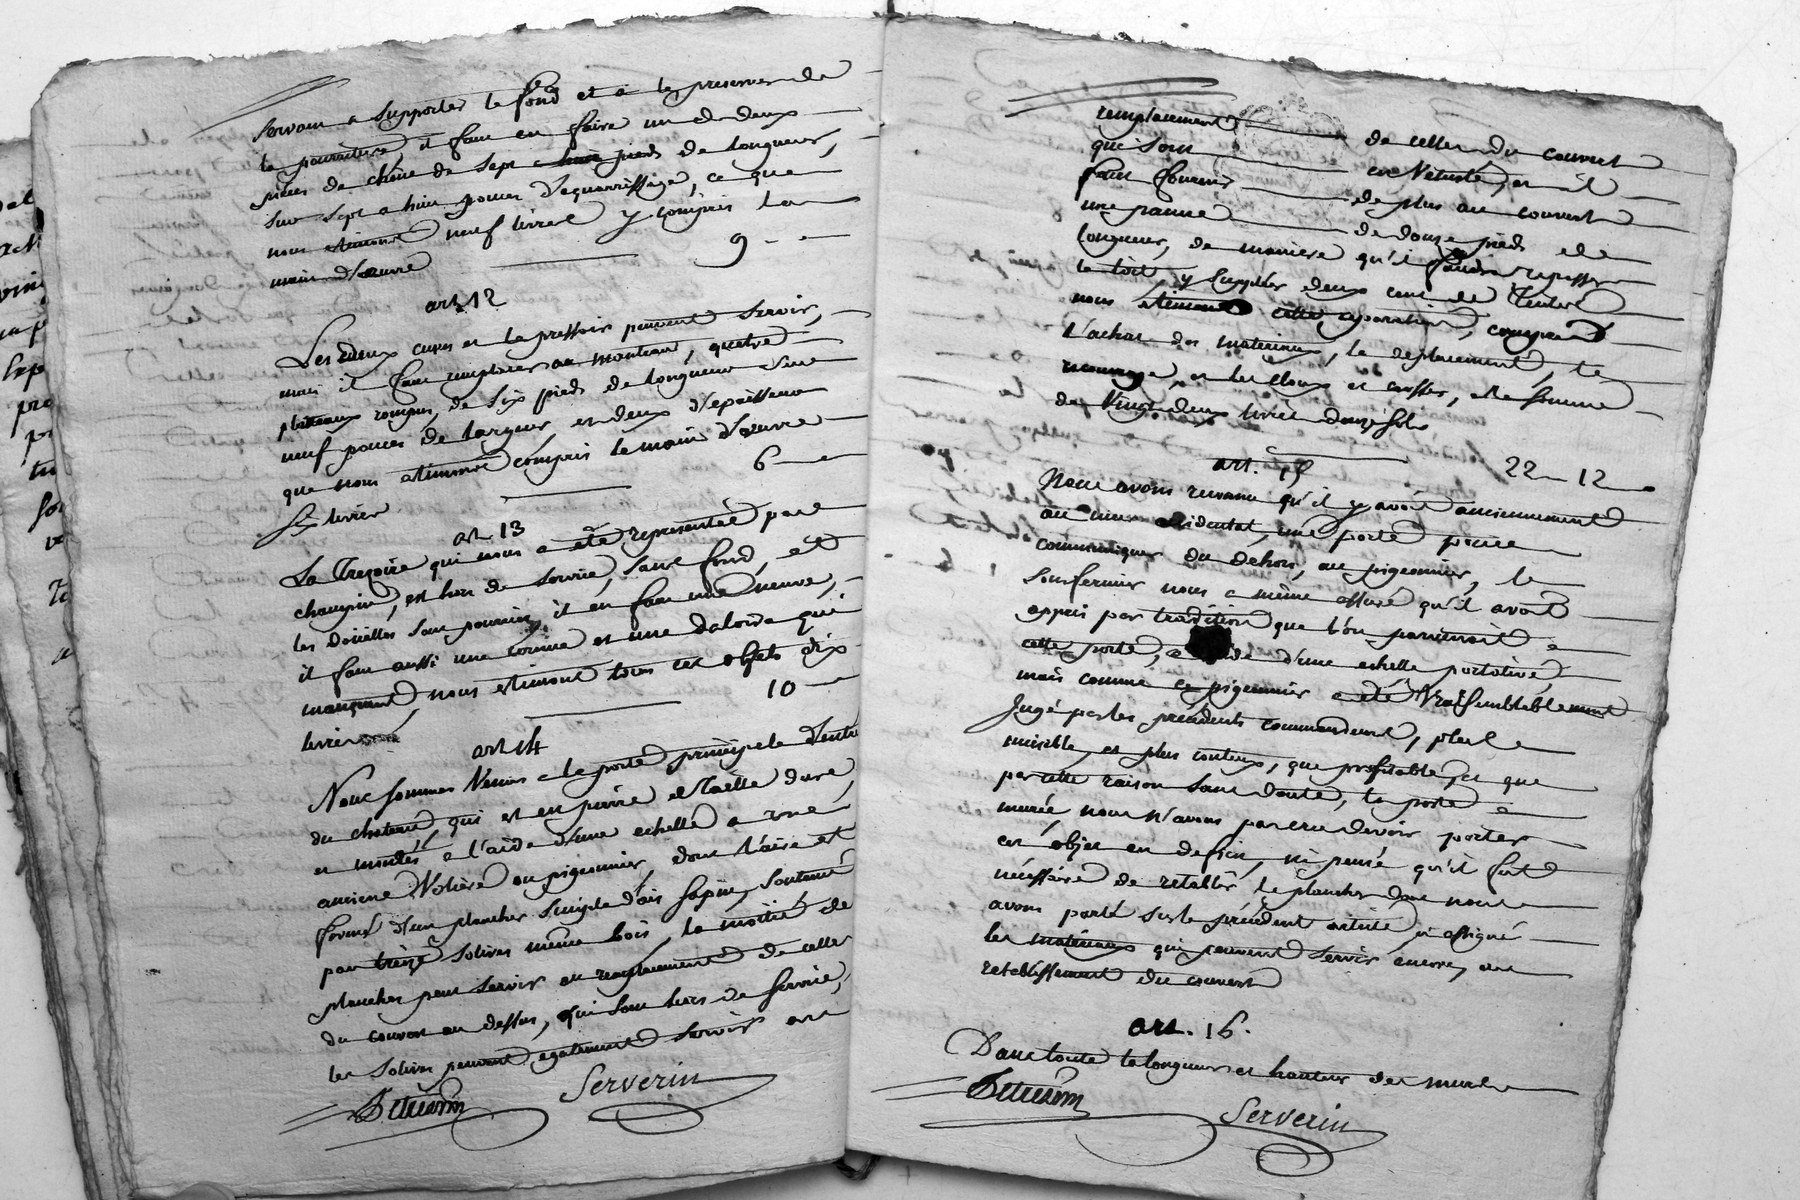 servant a supporter le fond et a les preserver de
la pourriture il faut en faire un de deux
pièces de chêne de sept a huit pieds de longueur,
sur sept a huit pouces d'equarrissage, ce que
nous estimons neuf livres y compris la
main d'œuvre 9
art. 12
Les deux cuves et le pressoir peuvent servir,
mais il faut remplacer au montant, quatre
platteaux rompus, de six pieds de longueur sur
neuf pouces de largeur, et deux d'epaisseur
que nous estimons compris la main d'œuvre
six livres 6
art. 13
La qui nous a été representée par
champin, est hors de service, sans fond, et
les doüelles sont pourries, il en faut une neuve,
il faut aussi une et une qui
manquent, nous estimons tous ces objets dix
livres 10
art 14
Nous sommes venus a la porte principale d'entrée
du chateau, qui est en pierre de taille dure,
et montés a l'aide d'une echelle a une
ancienne volière ou pigeonnier, dont l'aire est
formé d'un plancher simple d'ais sapin, soutenu
par treize solives même bois, la moitié de
plancher peut servir en remplacement de celles
du couvert au dessus, qui sont hors de service,
les solives peuvent egalement servir au
Serverin
remplacement de celles du couvert
que sont en vetusté, et il
faut fournir de plus au couvert
une panne de douze pieds de
longueur, de manière qu'il faudra repasser
le toit, y suppléer deux cent de tuiles
nous estimons cette reparation, comprend
l'achat des materiaux, le deplacement, le
recouvrage, et les cloux et crosses, a la somme
de vingt deux livres douze sols
22 - 12
art. 15
Nous avons reconnu qu'il y avoit anciennement
au mur occidental, une porte pour
communiquer du dehors, au pigeonnier, le
sousfermier nous a même assuré qu'il avoit
appris par tradition que l'on parvenoit a
cette porte, a d'une echelle portative,
mais comme ce pigeonnier a été vraisemblablement
jugé par les precedents commandeurs, plus
nuisible, et plus couteux, que profitable, et que
par cette raison sans doute, la porte a
murée, nous n'avons pas cru devoir porter
cet objet en deficit, ni pensé qu'il fut
nécessaire de retablir le plancher dont nous
avons parlé sur le précédent article, et assigné
les materiaux qui peuvent servir encore, au
retablissement du couvert
art. 16.
Dans toute la longueur et hauteur des murs
Serverin